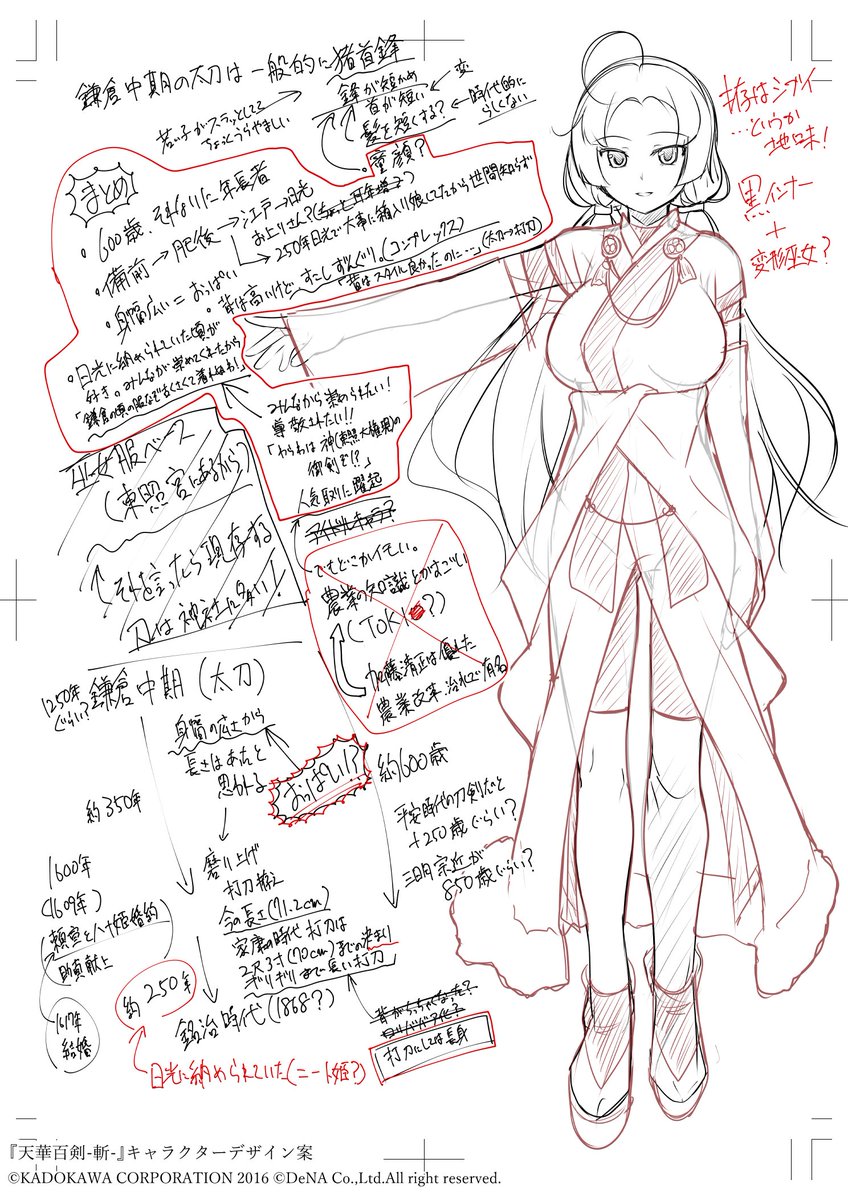 鎌倉中期の太刀は一般的に猪首鋒
鋒が短かめ
首が短い ← 変
髪を短くする? ← 時代的にらしくない
若い子がスラッとしてて
ちょっとうらやましい
・童顔?
まとめ
・600歳、それなりに年長者
・備前→肥後→江戸→日光
お上りさん?
250年日光で大事に箱入り娘してたから世間知らず
・身幅広い=おっぱい
・昔は高いけど、すこしずんぐり。(コンプレックス)
「昔はスタイル良かったのに…」(太刀→打刀)
・日光に納められていた頃が
好き。みんなが崇めてくれたから
みんなから崇められたい!
尊敬されたい!!
「わらわは神(東照大権現)の
御剣ぞ!?」
人気取りに躍起
アイドルキャラ?
巫女服ベース
(東照宮にあるから)
それを言ったら現存する
刀は神社に多い!
でもどこかイモい。
農業の知識とかすごい
(TOKIO?)
加藤清正は優れた
農業改革、治水で有名
1250年
ぐらい?
鎌倉中期(太刀)
身幅の広さから
長さはあったと
思われる
おっぱい!?
約600歳
平安時代の刀剣だと
+250歳ぐらい?
三日月宗近が
850歳ぐらい?
約350年
磨り上げ
打刀拵え
今の長さ(71.2cm)
家康の時代 打刀は
2尺3寸(70cm)までの決まり
ギリギリまで長い打刀
1600年
(1609年)
頼宣と八十姫婚約
助真献上
1617年
結婚
約250年
明治時代(1868?)
日光に納められていた(ニート姫?)
背がちっちゃくなった?
ロリババア化?
打刀にしては長身
拵はシブイ
…というか
地味!
黒インナー
+
変形巫女?
『天華百剣-斬-』キャラクターデザイン案
©KADOKAWA CORPORATION 2016 ©DeNA Co.,Ltd.All right reserved.